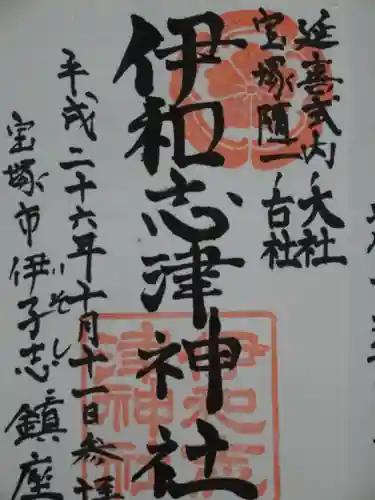 延喜式内大社
宝塚随一ノ古社
伊和志津神社
平成二十六年十月十一日参拝
宝塚市伊孑志鎮座
いそし